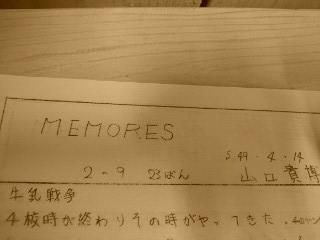 MEMORES
S.49.4.14
2-9 23ばん 山口貴博
牛乳戦争
4校時が終わりその時がやってきた。